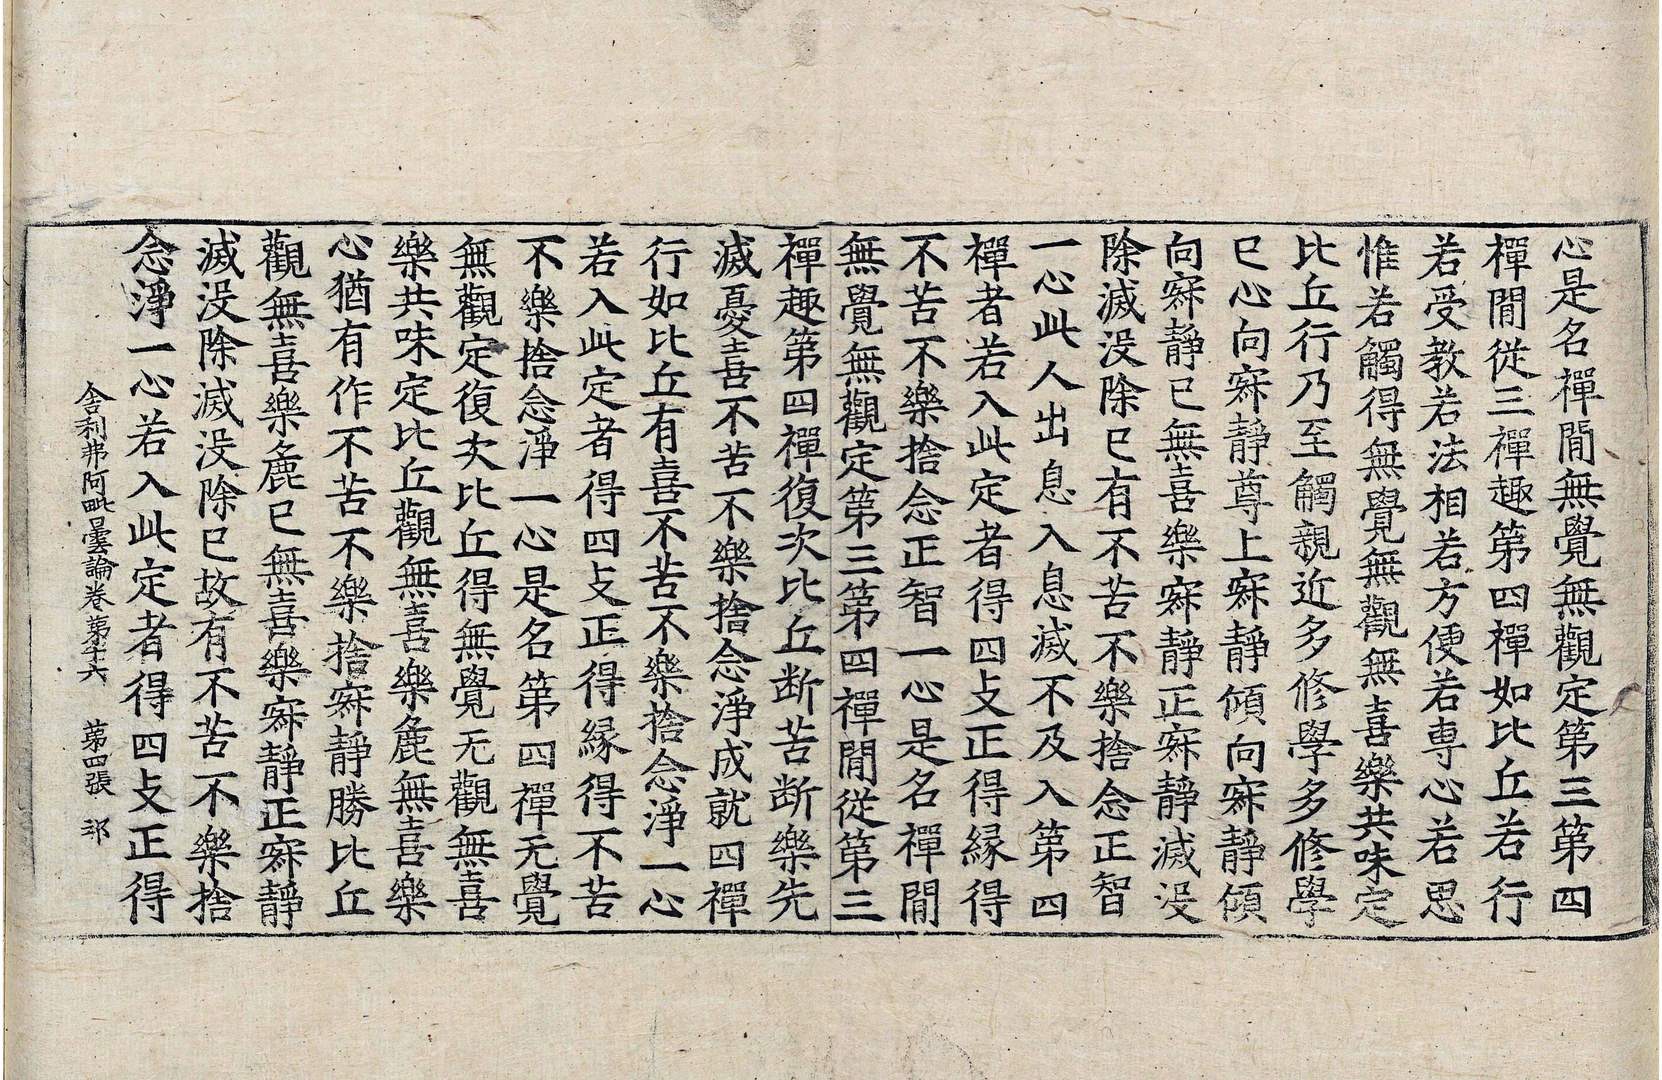 心是名禪閒無覺無觀定第三第四
禪閒從三禪趣第四禪如比丘若行
若受教若法相若方便若専心若思
惟若觸得無覺無觀無喜樂共味定
比丘行乃至觸親近多修學多修學
已心向寂靜尊上寂靜傾向寂靜傾
向寂靜已無喜樂寂靜正寂靜滅没
除滅没除已有不苦不樂捨念正智
一心此人出息入息滅不及入第四
禪者若入此定者得四攴正得縁得
不苦不樂捨念正智一心是名禪閒
無覺無觀定第三第四禪閒從第三
禪趣第四禪復次比丘断苦断樂先
滅憂喜不苦不樂捨念淨成就四禪
行如比丘有喜不苦不樂捨念淨一心
若入此定者得四攴正得縁得不苦
不樂捨念淨一心是名第四禪无覺
無觀定復次比丘得無覺无觀無喜
樂共味定比丘觀無喜樂麁無喜樂
心猶有作不苦不樂捨寂靜勝比丘
觀無喜樂麁已無喜樂寂靜正寂靜
滅没除滅没除已故有不苦不樂捨
念淨一心若入此定者得四攴正得
舍利弗阿毗曇論卷第廾六 第四張 邠